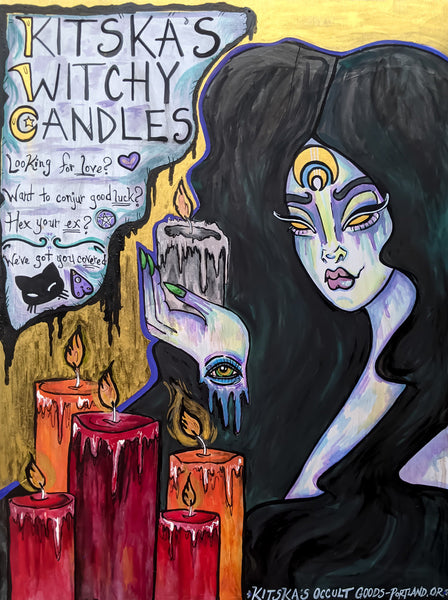 KITSKA'S
WITCHY
CANDLES
Looking for love?
Want to conjur good luck?
Hex your ex?
We've got you covered
KITSKA'S OCCULT GOODS-PORTLAND, OR